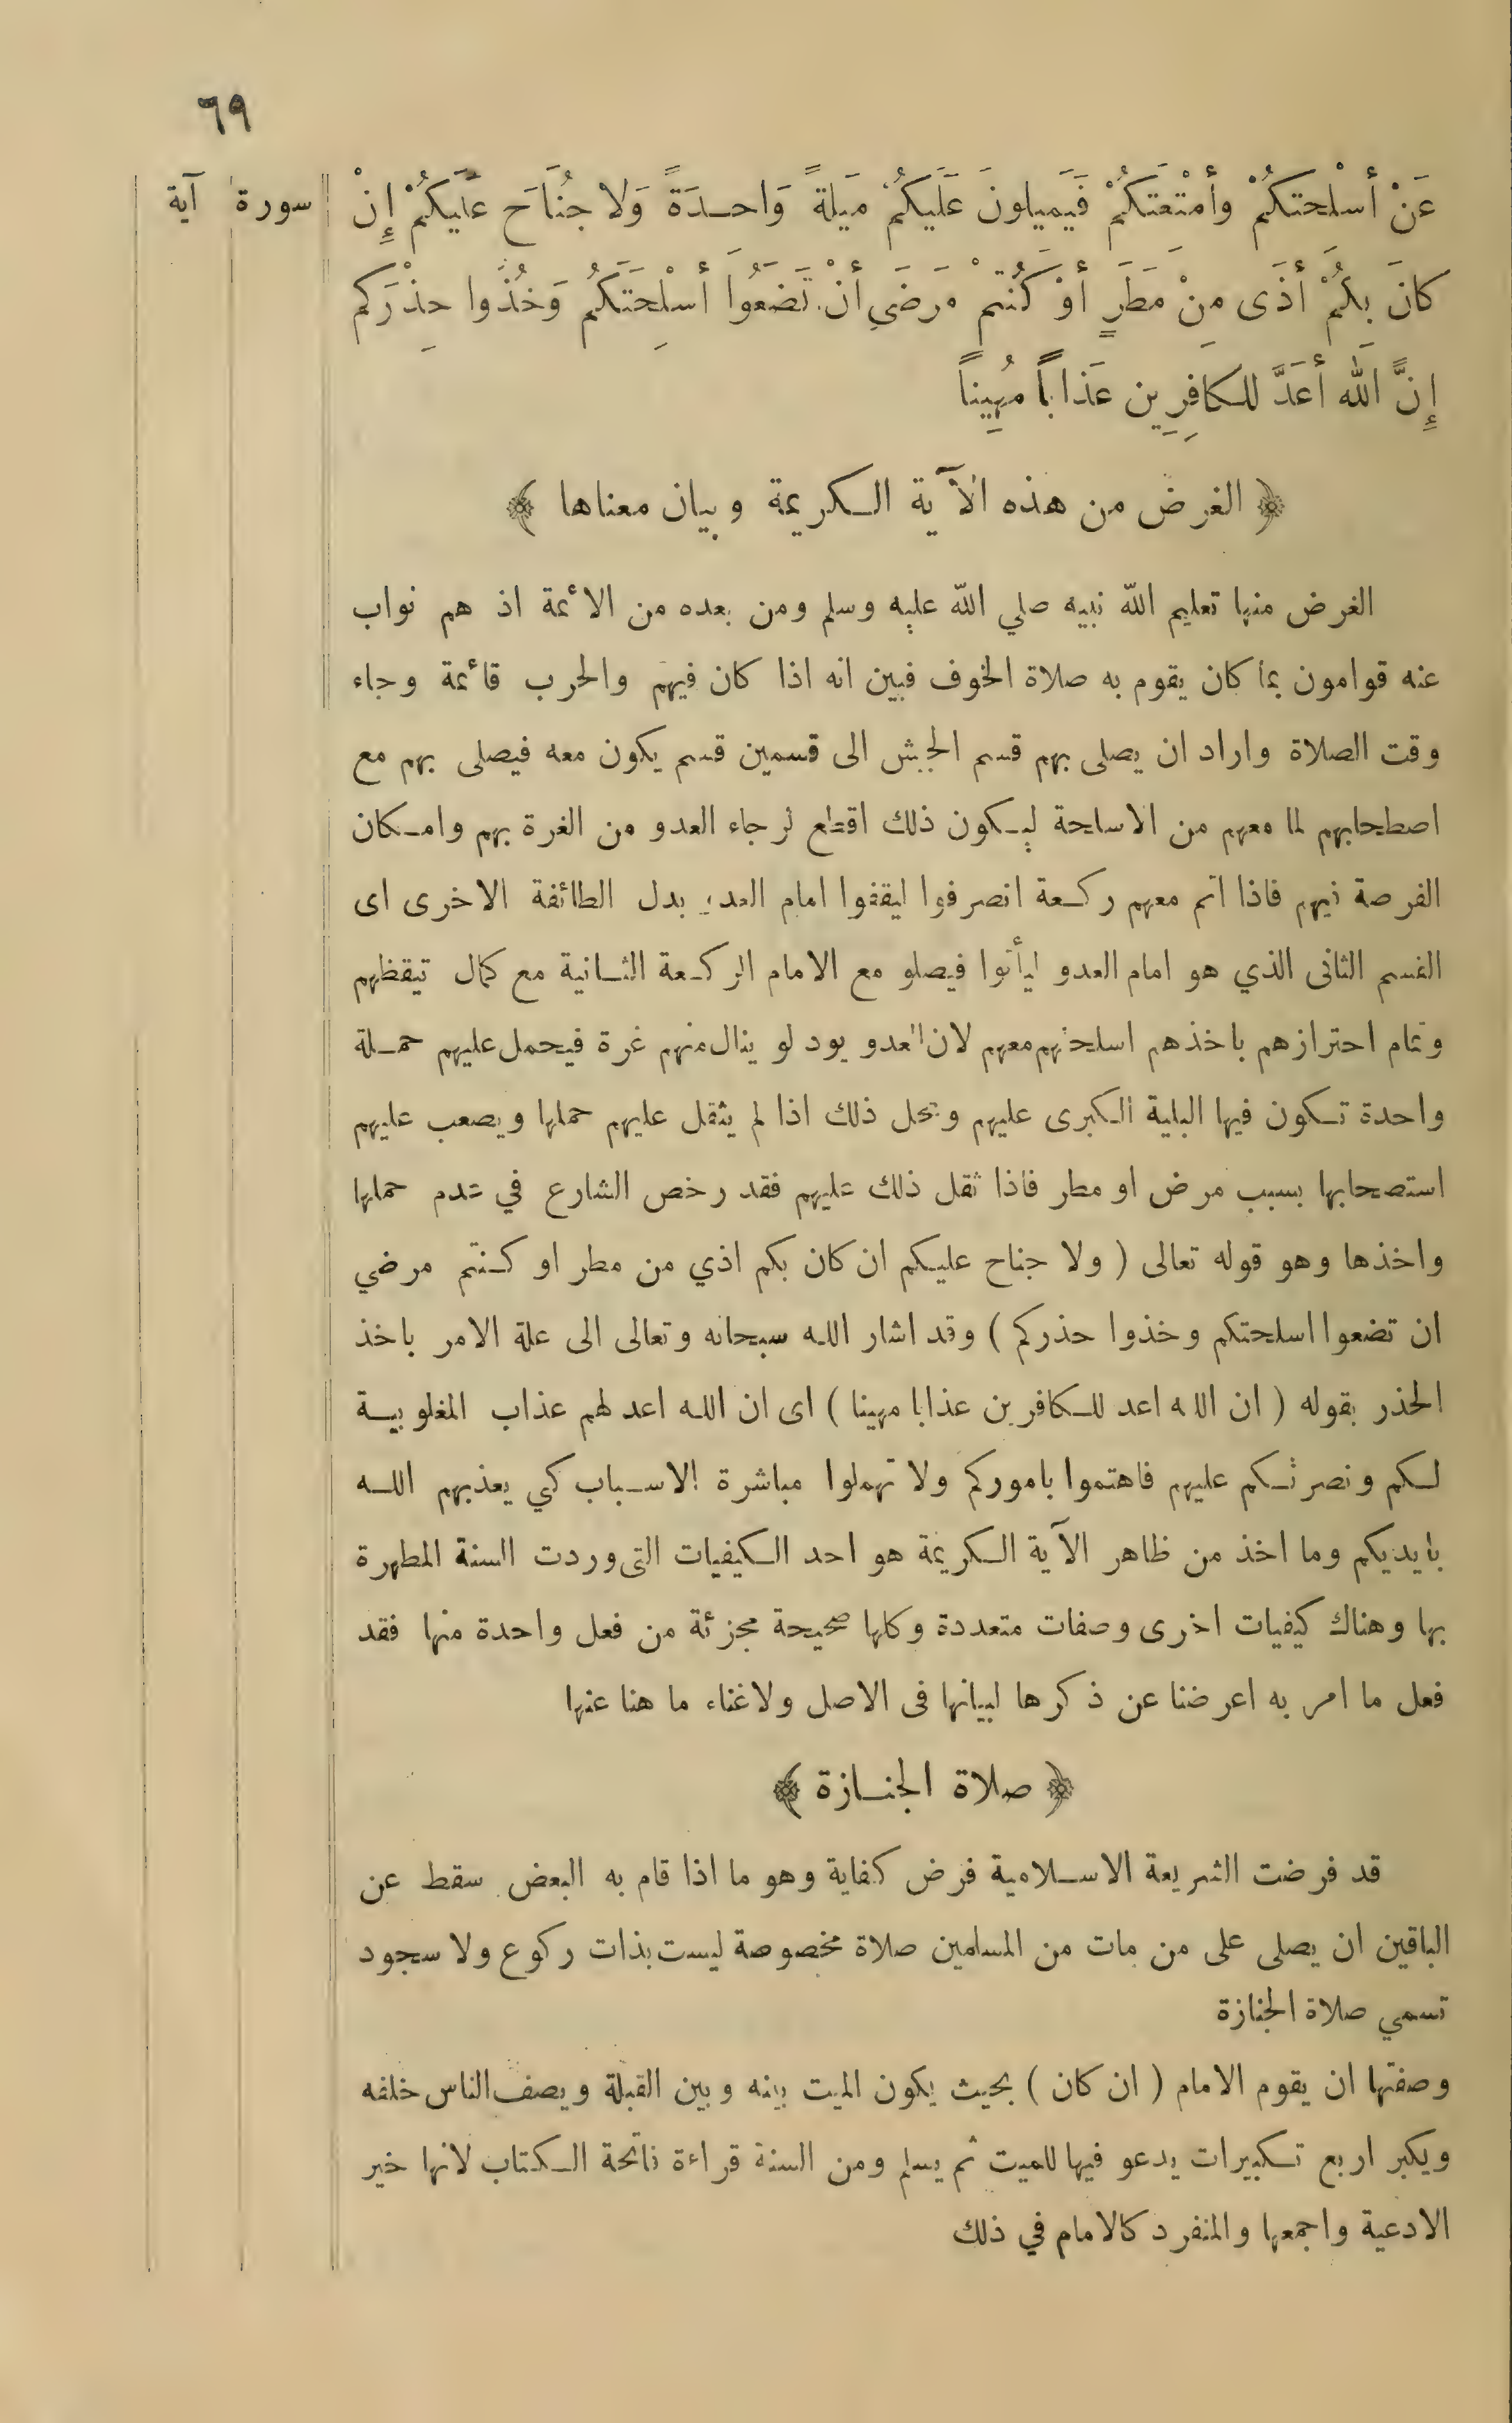 ٦٩
سورة آية
عَنْ أَسْلَحتكُمْ وأَمْتعَتكُمْ فَيَميلونَ عَلَيكُمْ مَيلَةً وَاحـدَةً وَلا جنُاَحَ عَلَيكُمْ إِنْ
كانَ بكُمْ أَذَى مِنْ مَطَرٍ أَوْ كُنتمْ مَرضَي أَنْ تَضَعُوا أَسْلِحَتَكُم وَخُذُوا حِذْرَكم
إِنَّ اللَه أَعَدَّ للـكافِرِين عَذاباً مُهِيناً
﴿ الغرض من هذه الآية الـكريمة وبيان معناها ﴾
الغرض منها تعليم اللّه نبيه صلي اللّه عليه وسلم ومن بعده من الأئمة اذ هم نواب
عنه قوامون بما كان يقوم به صلاة الخوف فبين انه اذا كان فيهم والحرب قائمة وجاء
وقت الصلاة واراد ان يصلى بهم قسم الجيش الى قسمين قسم يكون معه فيصلى بهم مع
اصطحابهم لما معهم من الاسلحة ليـكون ذلك اقطع لرجاء العدو من الغرة بهم وامـكان
الفرصة فيهم فاذا اتم معهم ركـعة انصرفوا ليقفوا امام العدو بدل الطائفة الاخرى اى
القسم الثانى الذي هو امام العدو ليأتوا فيصلو مع الامام الركـعة الثـانية مع كمال تيقظهم
وتمام احترازهم باخذهم اسلحتهم معهم لان العدو يود لو ينال منهم غرة فيحمل عليهم حمـلة
واحدة تـكون فيها البلية الـكبرى عليهم ومحل ذلك اذا لم يثقل عليهم حملها ويصعب عليهم
استصحابها بسبب مرض او مطر فاذا ثقل ذلك عليهم فقد رخص الشارع في عدم حملها
واخذها وهو قوله تعالى ( ولا جناح عليـكم ان كان بكم اذي من مطر او كـنتم مرضي
ان تضعوا اسلحتكم وخذوا حذركم ) وقد اشار اللـه سبحانه وتعالى الى علة الامر باخذ
الحذر بقوله ( ان الله اعد للـكافرين عذابا مهينا ) اى ان اللـه اعد لهم عذاب المغلوبيـة
لـكم ونصرتـكم عليهم فاهتموا باموركم ولا تهملوا مباشرة الاسـباب كي يعذبهم اللـه
بايديكم وما اخذ من ظاهر الآية الـكريمة هو احد الـكيفيات التى وردت السنة المطهرة
بها وهناك كيفيات اخرى وصفات متعددة وكلها صحيحة مجزئة من فعل واحدة منها فقد
فعل ما امر به اعرضنا عن ذكرها لبيانها فى الاصل ولاغناء ما هنا عنها
﴿ صلاة الجنـازة ﴾
قد فرضت الشريعة الاسـلامية فرض كفاية وهو ما اذا قام به البعض سقط عن
الباقين ان يصلى على من مات من المسلمين صلاة مخصوصة ليست بذات ركوع ولا سجود
تسمي صلاة الجنازة
وصفتها ان يقوم الامام ( ان كان ) بحيث يكون الميت بينه وبين القبلة ويصف الناس خلفه
ويكبر اربع تـكبيرات يدعو فيها للميت ثم يسلم ومن السنة قراءة فاتحة الـكتاب لانها خير
الادعية واجمعها والمنفرد كالامام في ذلك